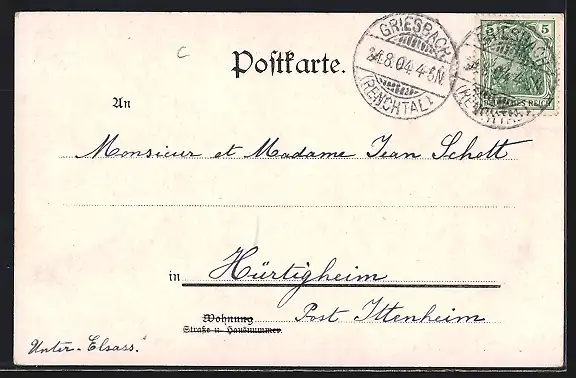 C
Postkarte.
GRIESBACH
8.04.4-5N.
(RENCHTAL)
5
GRIESBACH
REICH
An
Monsieur et Madame Jean Schott
in Hürtigheim
Wohnung
Straße u. Hausnummer.
Post Ittenheim
Unter-Elsass.